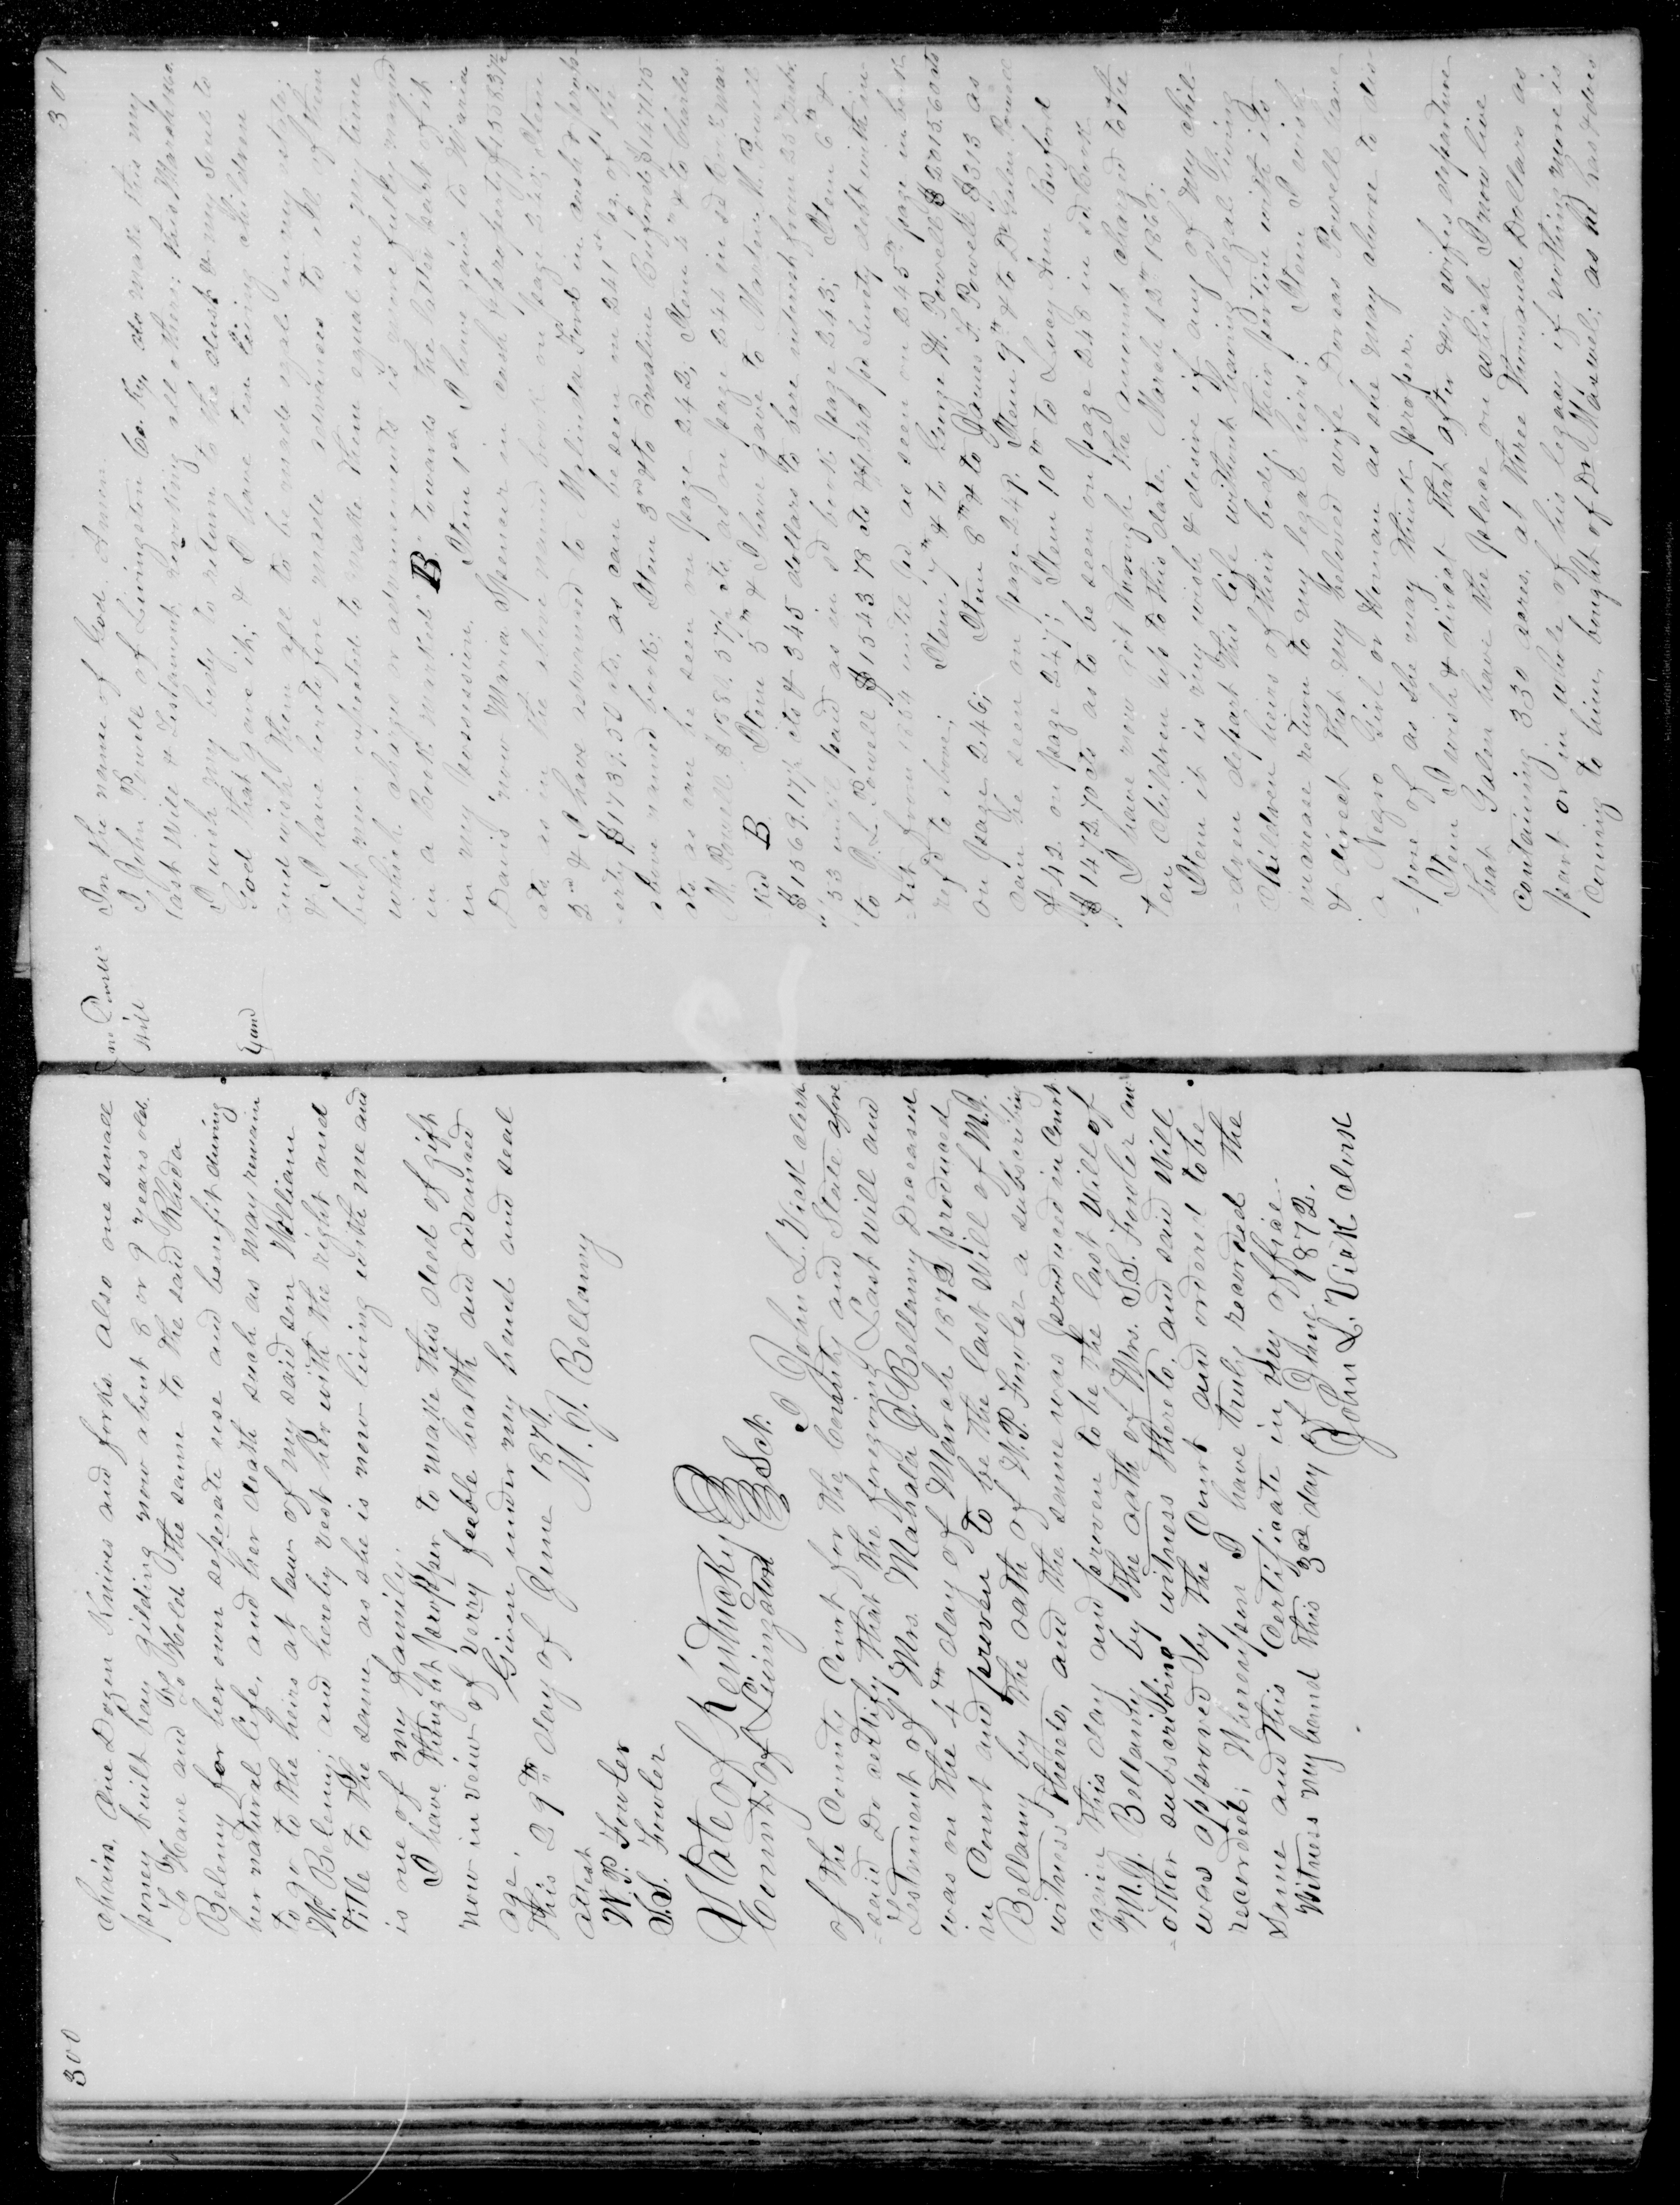 300
chairs, One Dozen Knives and forks. Also one small
poney built hoan gilding now about 8 or 9 years old.
To Have and to Hold the same to the said Rhoda
Belemy for her own seperate use and benefit during
her natural life, and her death such as may remain
to go to the heirs at law of my said son William
W. Belemy, and hereby vest her with the right and
title to the same, as she is now living with me and
is one of my family.
I have thought propper to make this deed of gift
now in veiw of verry feeble health and advanced
age.
Given under my hand and seal
This 29th day of June 1871.
attest
M. G. Bellamy
W. P. Fowler
S. S. Fowler
State of Kentucky
County of Livingston Sct.
I John L. Vick clerk
of the County Court for the County and State afore
-said Do certify that the foregoing Last will and
Testament of Mrs. Mahala G. Bellamy Deceased
was on the 4th day of March 1872 produced
in Court and proven to be the last will of M. G.
Bellamy by the oath of W. P. Fowler a subscribing
witness thereto, and the same was produced in Court
again this day and proven to be the last will of
M. G. Bellamy by the oath of Mrs. S. S. Fowler an
-other subscribing witness thereto, and said Will
was approved by the Court and ordered to be
recorded; Whereupon I have truly recorded the
Same and this Certificate in my office.
Witness my hand this 3rd day of June 1872.
John L. Vick clerk
301
Jno Powell
Will
In the name of God Amen.
I, John Powell of Livingston Co. Ky. do make this my
last Will & Testament revoking all others; this
I wish my body to return to the dust & my Soul to
God that gave it; & I have ten living children
and wish them all to be made equal in my estate;
& I have heretofore made advances to all of them
but never expected to make them equal in my time
which charge or advancements is more fully
in a Book marked B towards the latter part of it
in my possession. Item 1st I have given to Maria
Davis now Maria Spencer in cash & property $1558 37½
cts as in the above named book on page 242; Item
2nd & I have advanced to Melinda Ford in cash & prop-
erty $1737.50 cts. as can be seen on 241st pg. of the
above named book; Item 3rd & to Emaline Buford $1471 75
cts as can be seen on page 243; Item 4th & to Charles
M. Powell $1581.37½ cts as on page 244 in sd Book
B Item 5th & I have gave to Martin K. Powell
$1569.17½ cts & 345 dollars to bare interest from 25
'53 until paid as in sd book page 245; Item 6th &
to P. L. Powell $1543 78 cts & $1040 pd Surety debt with in-
-trest from 1854 until pd as seen on 245th page in book
refd to above; Item 7th & to George W. Powell
on page 246; Item 8th & to James F. Powell $1313 as
can be seen on page 249 Item 9th & to Dr Galin Powell
$42 on page 247; Item 10th to Lucy Ann Buford
$1472.70 cts as to be seen on page 248 in sd Book
I have now got through the amount charged to the
ten children up to this date, March 12th 1856;
Item it is my wish & desire if any of my chil-
-dren depart this life without having legal living
Children heirs of their body, their portion with its
increase return to my legal heirs; Item I wish
& direct that my beloved wife Dorcas Powell have
a Negro Girl or Woman as she may choose to dis
-pose of as she may think proper.
Item I wish & direct that after my wifes departure
that Galin have the place on which I now live
containing 330 acres, at Three Thousand Dollars as
part or in whole of his legacy if nothing more is
coming to him, bought of Dr Maxwel; as he has done